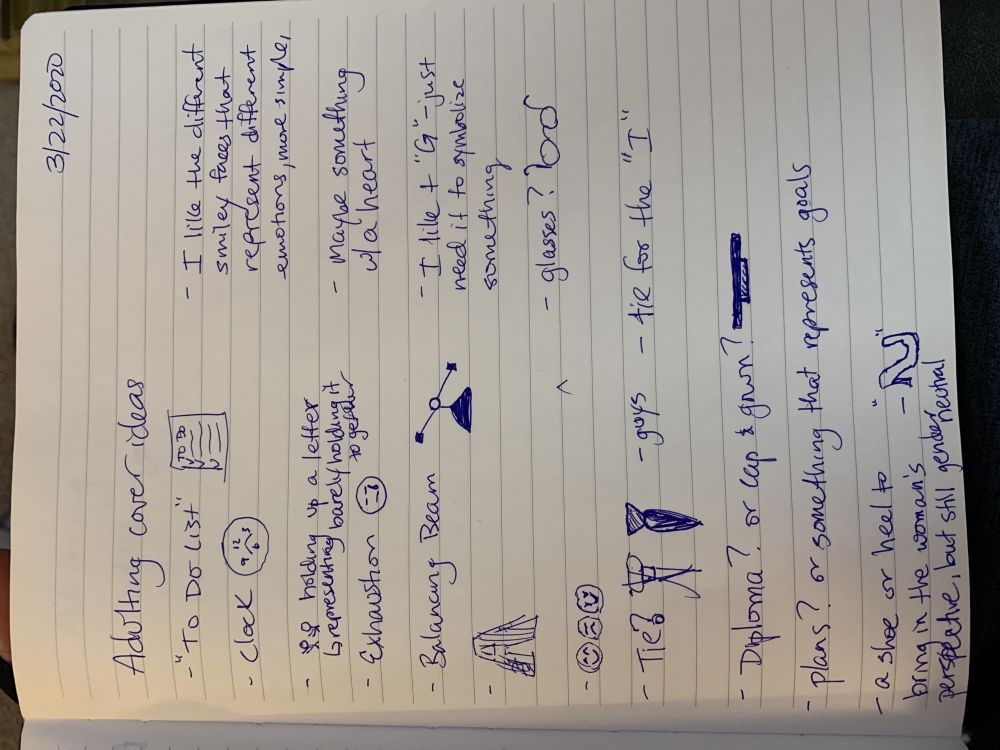 3/22/2020
Adulting cover ideas
- "TO DO LIST"
TO DO
- Clock
12
9 3
6
- holding up a letter
↳ representing barely holding it
together
- Exhaustion
- Balancing Beam
-
-
- Tie?
- guys - tie for the "I"
- Diploma? or cap & gown?
- plans? or something that represents goals
- a shoe or heel to "
bring in the woman's - "
perspective, but still gender
neutral
- I like the different
smiley faces that
represent different
emotions, more simple,
- Maybe something
w/ a heart
- I like + "G" - just
need it to symbolize
something
- glasses?